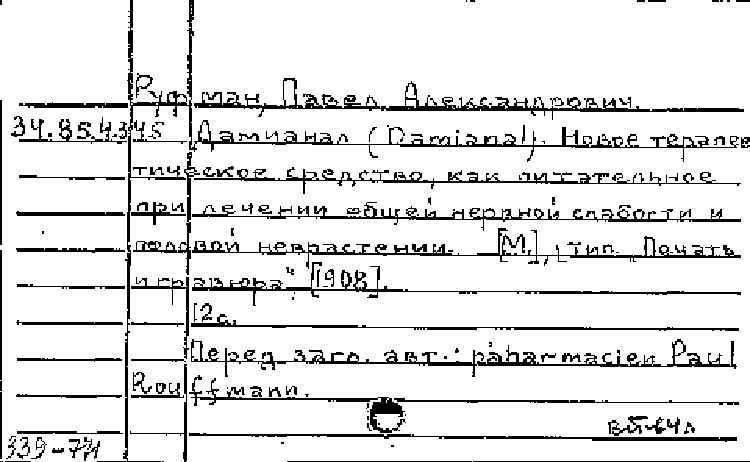 Руфман, Павел Александрович.
34.85.4345 Дамианал (Damianal). Новое терапев
тическое средство, как питательное
при лечении общей нервной слабости и
половой неврастении. [М.], тип. „Печать
и гравюра", [1908].
12с.
Перед загл. авт.: paharmacien Paul
Rouffmann.
ВП-64л
339-71